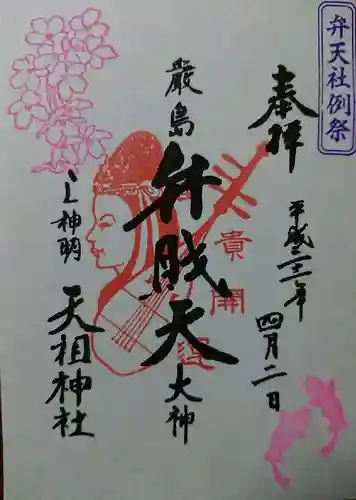 弁天社例祭
奉拝
平成三十一年
四月二日
嚴島
弁財天
大神
開運
神明
天相神社